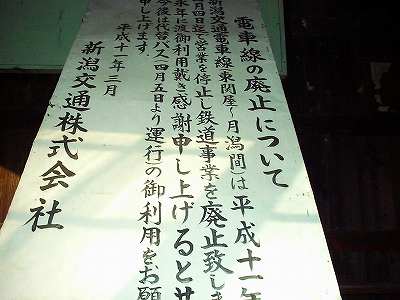 電車線の廃止について
新潟交通電車線東関屋～月潟間は平成十一年
月四日迄で営業を停止し鉄道事業を廃止致しま
来年に渡御利用戴き感謝申し上げるとせ
今後は代替バス(四月五日より運行)の御利用をお願
申し上げます。
平成十一年三月
新潟交通株式会社